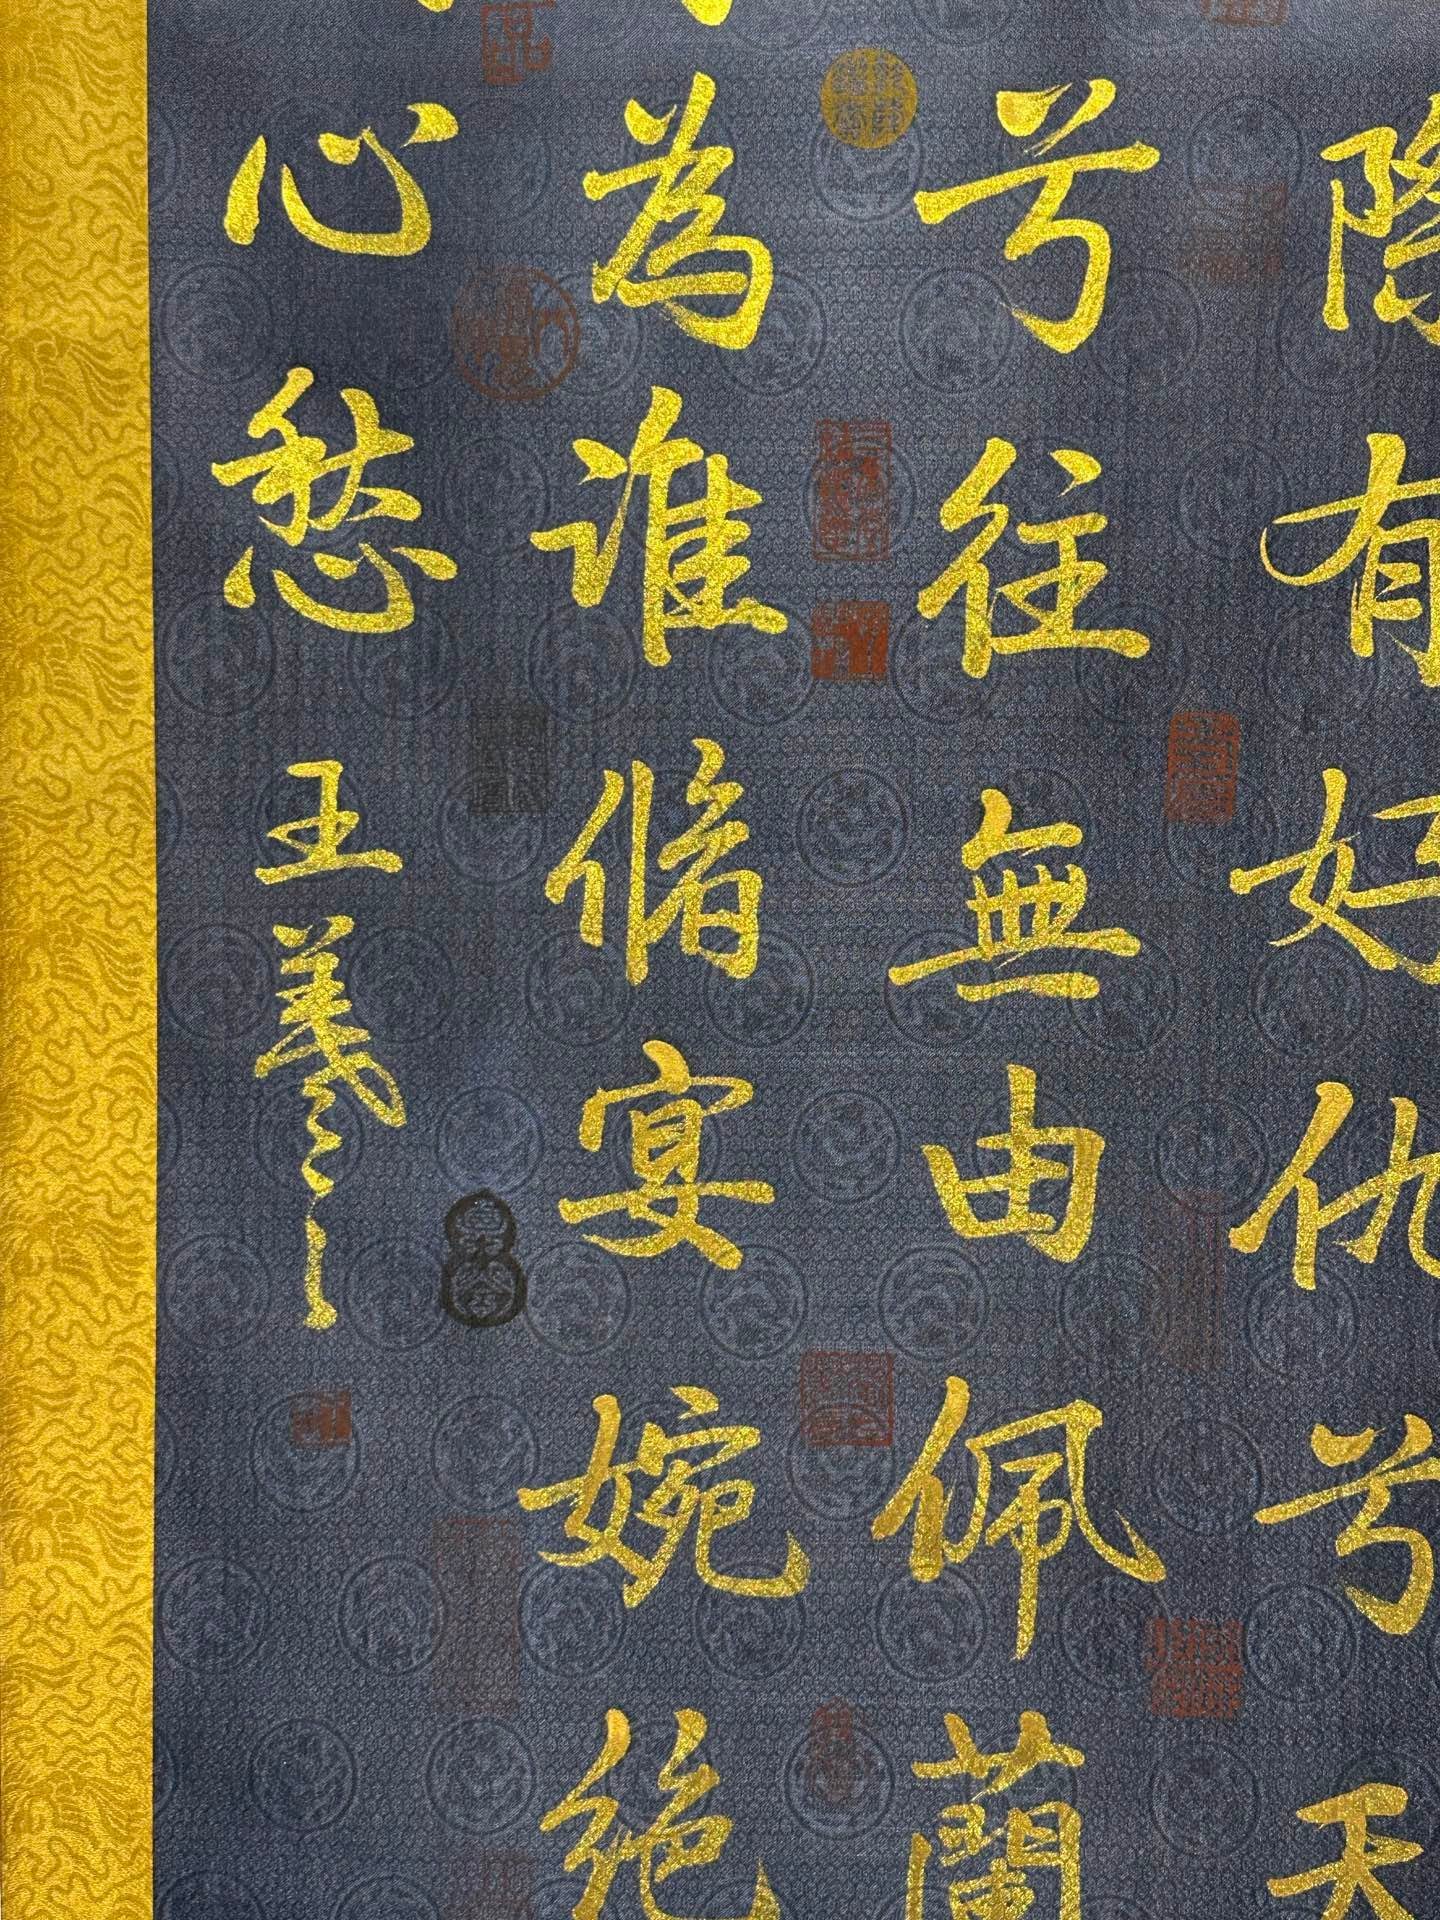 際有好仇兮天
兮往無由佩蘭
為誰脩宴婉絕
心愁 王羲之